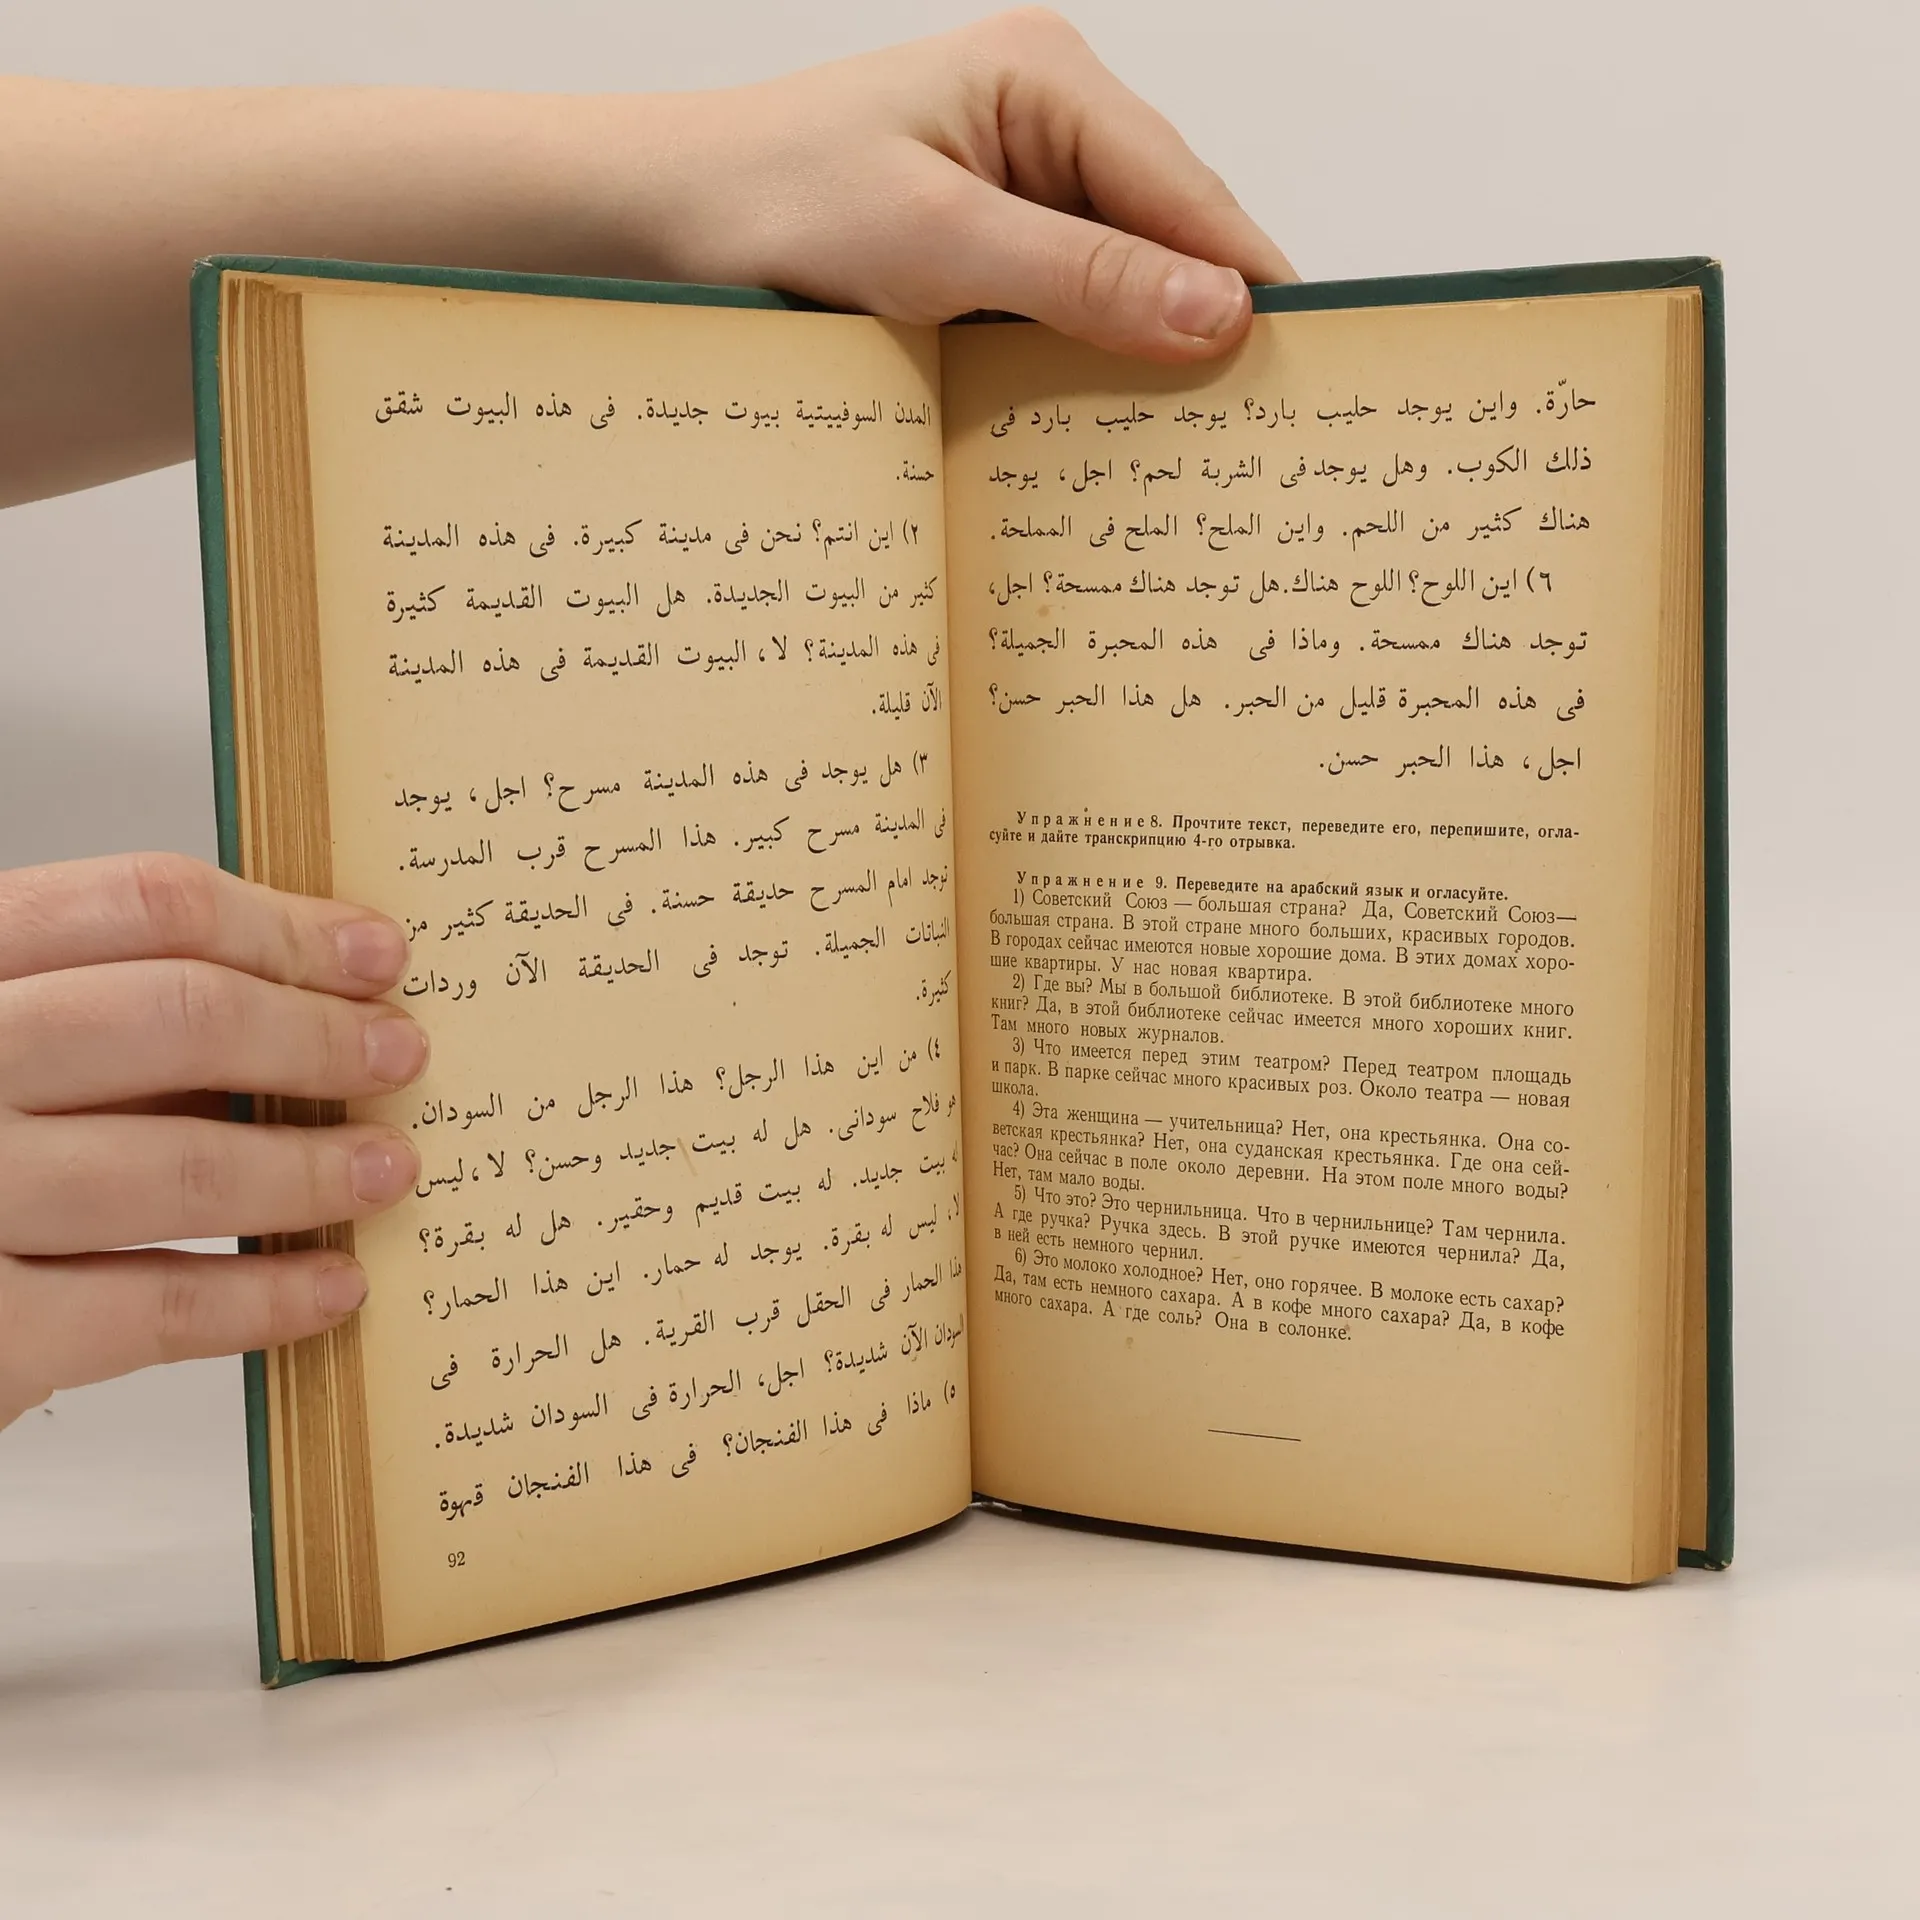 المدن السوفييتية بيوت جديدة. فى هذه البيوت شقق
حسنة.
٢) اين انتم؟ نحن فى مدينة كبيرة. فى هذه المدينة
كثير من البيوت الجديدة. هل البيوت القديمة كثيرة
فى هذه المدينة؟ لا، البيوت القديمة فى هذه المدينة
الآن قليلة.
٣) هل يوجد فى هذه المدينة مسرح؟ اجل، يوجد
فى المدينة مسرح كبير. هذا المسرح قرب المدرسة.
توجد امام المسرح حديقة حسنة. فى الحديقة كثير من
النباتات الجميلة. توجد فى الحديقة الآن وردات
كثيرة.
٤) من اين هذا الرجل؟ هذا الرجل من السودان.
هو فلاح سودانى. هل له بيت جديد وحسن؟ لا، ليس
له بيت جديد. له بيت قديم وحقير. هل له بقرة؟
لا، ليس له بقرة. يوجد له حمار. اين هذا الحمار؟
هذا الحمار فى الحقل قرب القرية. هل الحرارة فى
السودان الآن شديدة؟ اجل، الحرارة فى السودان شديدة.
٥) ماذا فى هذا الفنجان؟ فى هذا الفنجان قهوة
92
حارّة. واين يوجد حليب بارد؟ يوجد حليب بارد فى
ذلك الكوب. وهل يوجد فى الشربة لحم؟ اجل، يوجد
هناك كثير من اللحم. واين الملح؟ الملح فى المملحة.
٦) اين اللوح؟ اللوح هناك. هل توجد هناك ممسحة؟ اجل،
توجد هناك ممسحة. وماذا فى هذه المحبرة الجميلة؟
فى هذه المحبرة قليل من الحبر. هل هذا الحبر حسن؟
اجل، هذا الحبر حسن.
Упражнение 8. Прочтите текст, переведите его, перепишите, огла-
суйте и дайте транскрипцию 4-го отрывка.
Упражнение 9. Переведите на арабский язык и огласуйте.
1) Советский Союз — большая страна? Да, Советский Союз—
большая страна. В этой стране много больших, красивых городов.
В городах сейчас имеются новые хорошие дома. В этих домах хоро-
шие квартиры. У нас новая квартира.
2) Где вы? Мы в большой библиотеке. В этой библиотеке много
книг? Да, в этой библиотеке сейчас имеется много хороших книг.
Там много новых журналов.
3) Что имеется перед этим театром? Перед театром площадь
и парк. В парке сейчас много красивых роз. Около театра — новая
школа.
4) Эта женщина — учительница? Нет, она крестьянка. Она со-
ветская крестьянка? Нет, она суданская крестьянка. Где она сей-
час? Она сейчас в поле около деревни. На этом поле много воды?
Нет, там мало воды.
5) Что это? Это чернильница. Что в чернильнице? Там чернила.
А где ручка? Ручка здесь. В этой ручке имеются чернила? Да,
в ней есть немного чернил.
6) Это молоко холодное? Нет, оно горячее. В молоке есть сахар?
Да, там есть немного сахара. А в кофе много сахара? Да, в кофе
много сахара. А где соль? Она в солонке.